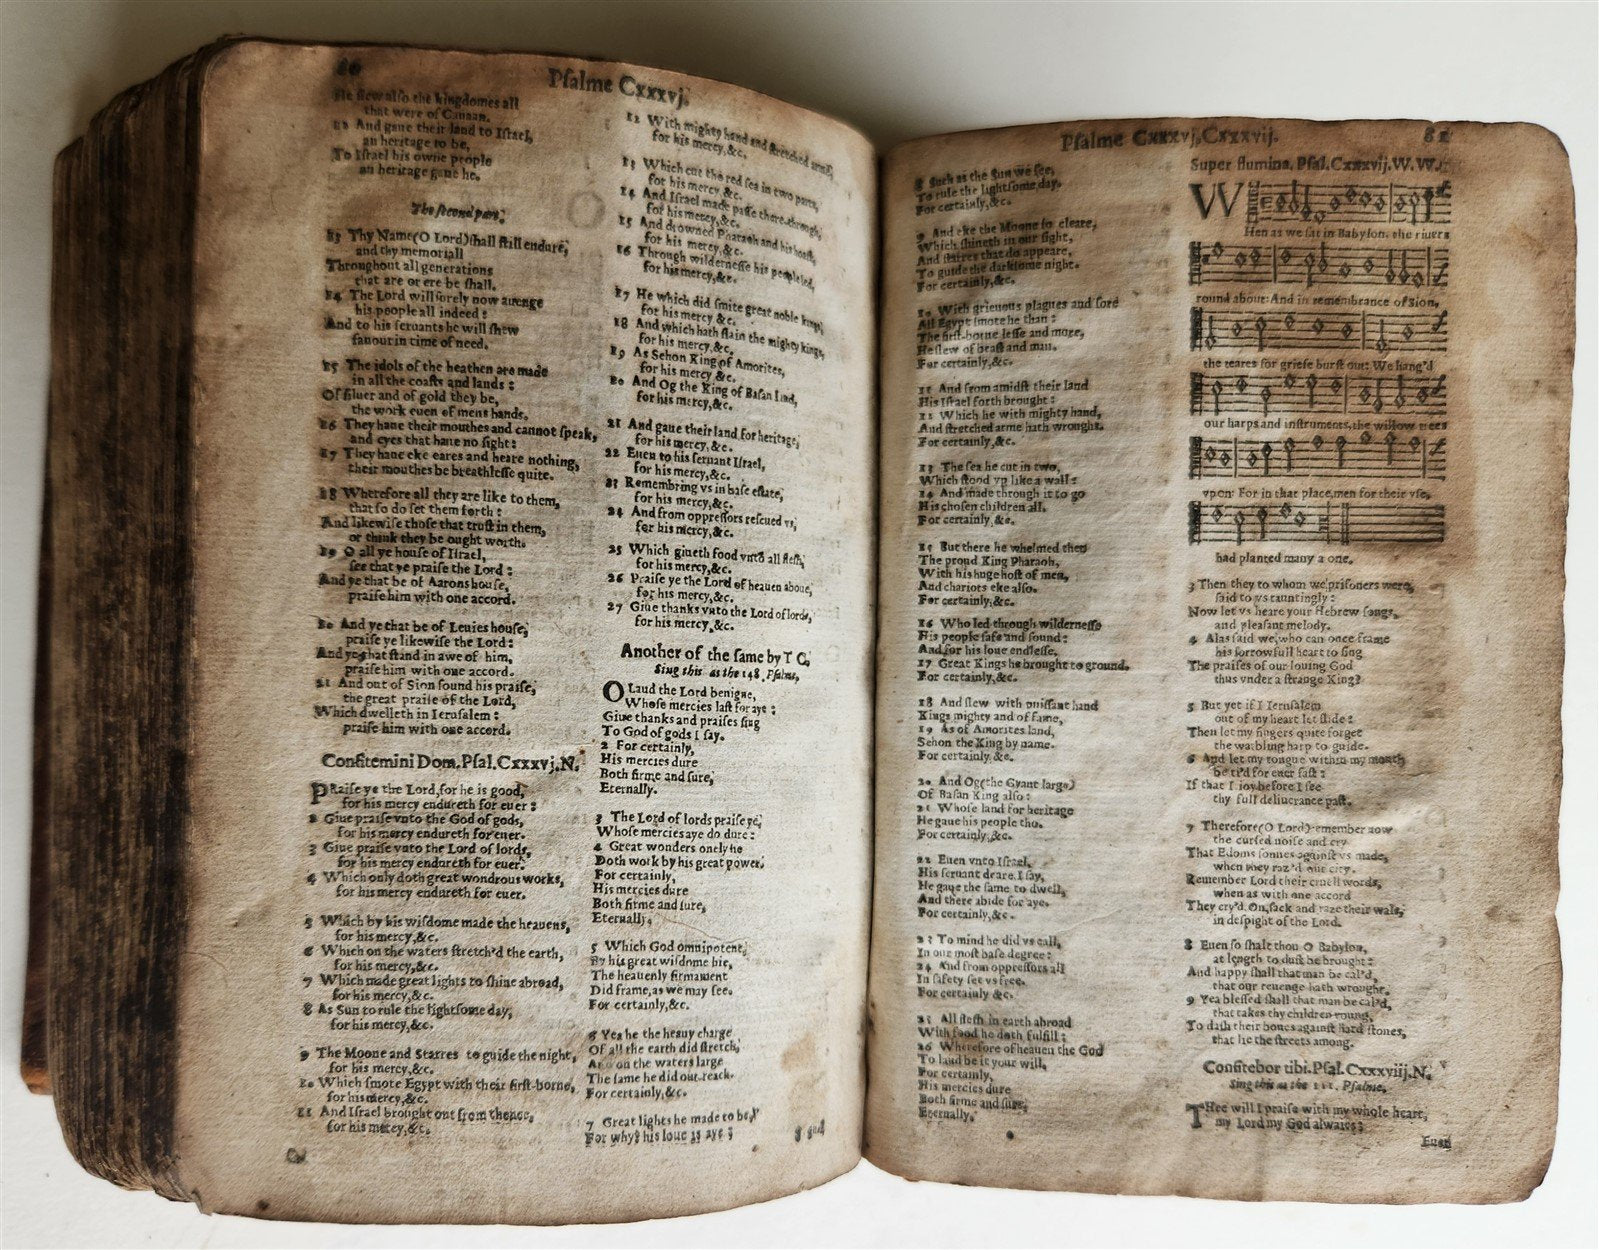 80
Psalme Cxxxvj.
He slew also the kingdomes all
that were of Canaan.
12 And gaue their land to Israel,
an heritage to be,
To Israel his owne people
an heritage gaue he.
The second part.
13 Thy Name (O Lord) shall still endure,
and thy memoriall
Throughout all generations
that are or ere be shall.
14 The Lord will surely now auenge
his people all indeed:
And to his seruants he will shew
fauour in time of need.
15 The idols of the heathen are made
in all the coasts and lands:
Of siluer and of gold they be,
the work euen of mens hands,
16 They haue their mouthes and cannot speak,
and eyes that haue no sight:
17 They haue eke eares and heare nothing,
their mouthes be breathlesse quite.
18 Wherefore all they are like to them,
that so do set them forth:
And likewise those that trust in them,
or think they be ought worth.
19 O all ye house of Israel,
see that ye praise the Lord:
And ye that be of Aarons house,
praise him with one accord.
20 And ye that be of Leuies house,
praise ye likewise the Lord:
And ye that stand in awe of him,
praise him with one accord.
21 And out of Sion sound his praise,
the great praise of the Lord,
Which dwelleth in Ierusalem:
praise him with one accord.
Confitemini Dom. Psal. Cxxxvj. N.
PRaise ye the Lord, for he is good,
for his mercy endureth for euer:
2 Giue praise vnto the God of gods,
for his mercy endureth for euer.
3 Giue praise vnto the Lord of lords,
for his mercy endureth for euer.
4 Which only doth great wondrous works,
for his mercy endureth for euer.
5 Which by his wisdome made the heauens,
for his mercy, &c.
6 Which on the waters stretch'd the earth,
for his mercy, &c.
7 Which made great lights to shine abroad,
for his mercy, &c.
8 As Sun to rule the lightsome day,
for his mercy, &c.
9 The Moone and Starres to guide the night,
for his mercy, &c.
10 Which smote Egypt with their first-borne,
for his mercy, &c.
11 And Israel brought out from thence,
for his mercy, &c.
12 With mighty hand and stretched arme,
for his mercy, &c.
13 Which cut the red sea in two parts,
for his mercy &c.
14 And Israel made passe there-through,
for his mercy, &c.
15 And drowned Pharaoh and his hoast,
for his mercy, &c.
16 Through wildernesse his people led,
for his mercy, &c.
17 He which did smite great noble kings,
for his mercy &c.
18 And which hath slain the mighty kings,
for his mercy, &c.
19 As Sehon King of Amorites,
for his mercy &c.
20 And Og the King of Basan land,
for his mercy, &c.
21 And gaue their land for heritage,
for his mercy, &c.
22 Euen to his seruant Israel,
for his mercy, &c.
23 Remembring vs in base estate,
for his mercy, &c.
24 And from oppressors rescued vs,
for his mercy, &c.
25 Which giueth food vnto all flesh,
for his mercy, &c.
26 Praise ye the Lord of heauen aboue,
for his mercy, &c.
27 Giue thanks vnto the Lord of lords,
for his mercy, &c.
Another of the same by T C.
Sing this as the 148 Psalme,
O Laud the Lord benigne,
Whose mercies last for aye:
Giue thanks and praises sing
To God of gods I say.
2 For certainly,
His mercies dure
Both firme and sure,
Eternally.
3 The Lord of lords praise ye,
Whose mercies aye do dure:
4 Great wonders onely he
Doth work by his great power.
For certainly,
His mercies dure
Both firme and sure,
Eternally.
5 Which God omnipotent,
By his great wisdome hie,
The heauenly firmament
Did frame, as we may see.
For certainly, &c.
6 Yea he the heauy charge
Of all the earth did stretch,
And on the waters large
The same he did out-reach.
For certainly, &c.
7 Great lights he made to be,
For why? his loue is aye:
8 Such
Psalme Cxxxvj, Cxxxvij.
81
8 Such as the Sun we see,
To rule the lightsome day.
For certainly, &c.
9 And eke the Moone so cleare,
Which shineth in our sight,
And starres that do appeare,
To guide the darksome night.
For certainly, &c.
10 With grieuous plagues and sore
All Egypt smote he than:
The first-borne lesse and more,
He slew of beast and man.
For certainly, &c.
11 And from amidst their land
His Israel forth brought:
12 Which he with mighty hand,
And stretched arme hath wrought.
For certainly, &c.
13 The sea he cut in two,
Which stood vp like a wall:
14 And made through it to go
His chosen children all.
For certainly, &c.
15 But there he whelmed then
The proud King Pharaoh,
With his huge host of men,
And chariots eke also.
For certainly, &c.
16 Who led through wildernesse
His people safe and sound:
And for his loue endlesse.
17 Great Kings he brought to ground.
For certainly, &c.
18 And slew with puissant hand
Kings mighty and of fame,
19 As of Amorites land,
Sehon the King by name.
For certainly, &c.
20 And Og (the Gyant large)
Of Basan King also:
21 Whose land for heritage
He gaue his people tho.
For certainly, &c.
22 Euen vnto Israel,
His seruant deare I say,
He gaue the same to dwell,
And there abide for aye.
For certainly, &c.
23 To mind he did vs call,
In our most base degree:
24 And from oppressors all
In safety set vs free.
For certainly &c.
25 All flesh in earth abroad
With food he doth fulfill:
26 Wherefore of heauen the God
To laud be it your will.
For certainly,
His mercies dure
Both firme and sure,
Eternally.
Super flumina. Psal. Cxxxvij. W. W.
WHen as we sat in Babylon, the riuers
round about: And in remembrance of Sion,
the teares for griefe burst out: We hang'd
our harps and instruments, the willow trees
vpon: For in that place, men for their vse,
had planted many a one.
3 Then they to whom we prisoners were,
said to vs tauntingly:
Now let vs heare your Hebrew songs,
and pleasant melody.
4 Alas said we, who can once frame
his sorrowfull heart to sing
The praises of our louing God
thus vnder a strange King?
5 But yet if I Ierusalem
out of my heart let slide:
Then let my fingers quite forget
the warbling harp to guide.
6 And let my tongue within my mouth
be ti'd for euer fast:
If that I ioy before I see
thy full deliuerance past.
7 Therefore (O Lord) remember now
the cursed noise and cry
That Edoms sonnes against vs made,
when they raz'd our city.
Remember Lord their cruell words,
when as with one accord
They cry'd, On, sack and raze their wals,
in despight of the Lord.
8 Euen so shalt thou O Babylon,
at length to dust be brought:
And happy shall that man be cal'd,
that our reuenge hath wrought.
9 Yea blessed shall that man be cal'd,
that takes thy children young,
To dash their bones against hard stones,
that lie the streets among.
Confitebor tibi. Psal. Cxxxviij. N.
Sing this as the 111. Psalme,
THee will I praise with my whole heart,
my Lord my God alwaies:
Euen